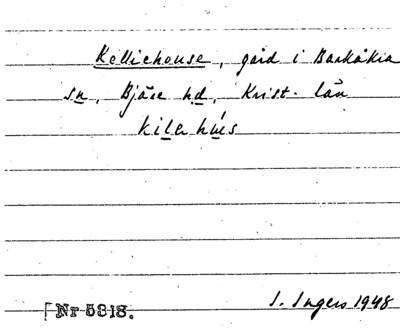 Kelliehouse, gård i Barkåkra
sn, Bjäre hd, Krist. län
kilerhús
Nr 5818.
I. Ingers 1948